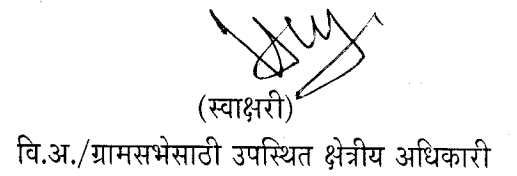 (स्वाक्षरी)
वि.अ./ग्रामसभेसाठी उपस्थित क्षेत्रीय अधिकारी